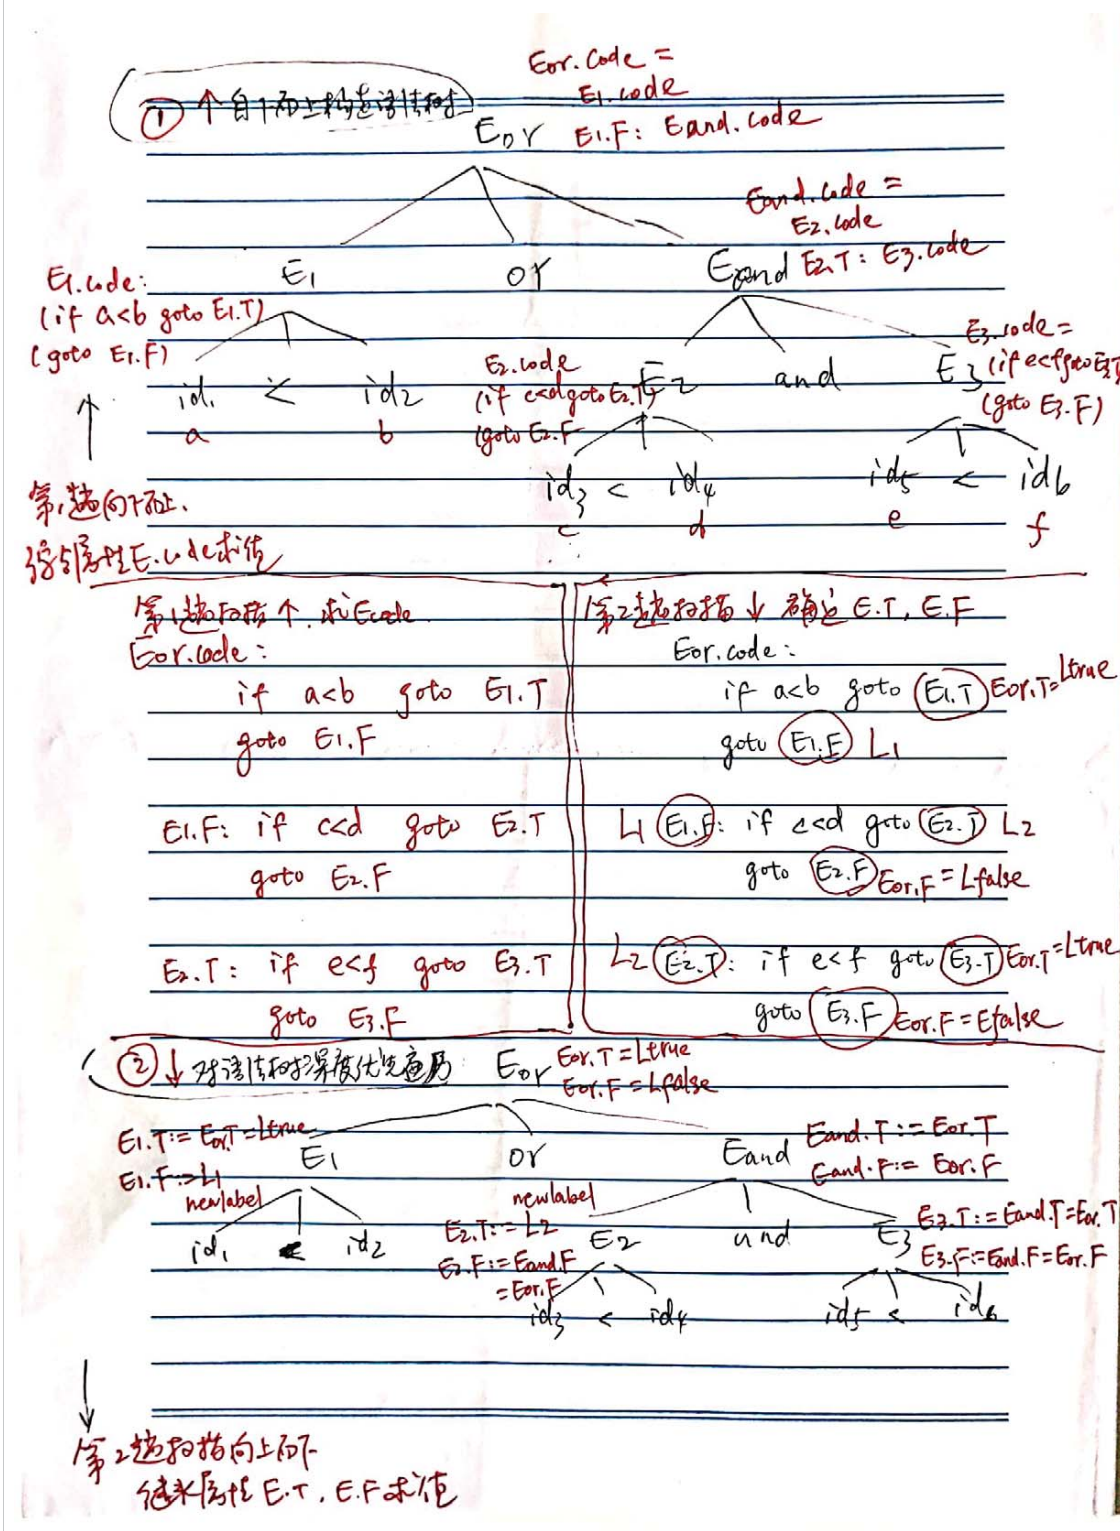 Eor.code =
E1.code
① ↑ 自下而上构造语法树
Eor E1.F: Eand.code
Eand.code =
E2.code
E1 or Eand E2.T: E3.code
E1.code:
(if a<b goto E1.T)
(goto E1.F)
E3.code =
(if e<f goto E3.T
(goto E3.F)
E2.code
(if c<d goto E2.T)
(goto E2.F
id1 < id2 E2 and E3
a b
id3 < id4 id5 < id6
c d e f
第1趟向下而上.
综合属性E.code求值
第1趟扫描 ↑. 求E.code
Eor.code:
if a<b goto E1.T
goto E1.F
E1.F: if c<d goto E2.T
goto E2.F
E2.T: if e<f goto E3.T
goto E3.F
第2趟扫描 ↓ 确定 E.T, E.F
Eor.code:
if a<b goto E1.T Eor.T=Ltrue
goto E1.F L1
L1 E1.F: if c<d goto E2.T L2
goto E2.F Eor.F=Lfalse
L2 E2.T: if e<f goto E3.T Eor.T=Ltrue
goto E3.F Eor.F=Efalse
② ↓ 对语法树深度优先遍历
Eor Eor.T=Ltrue
Eor.F=Lfalse
E1.T:=Eor.T=Ltrue
E1.F:=L1
newlabel
E1 or Eand
Eand.T:=Eor.T
Eand.F:=Eor.F
id1 < id2
newlabel
E2.T:=L2
E2.F:=Eand.F
=Eor.F
E2 and E3
E3.T:=Eand.T=Eor.T
E3.F:=Eand.F=Eor.F
id3 < id4 id5 < id6
第2趟扫描向上而下
继承属性 E.T, E.F求值